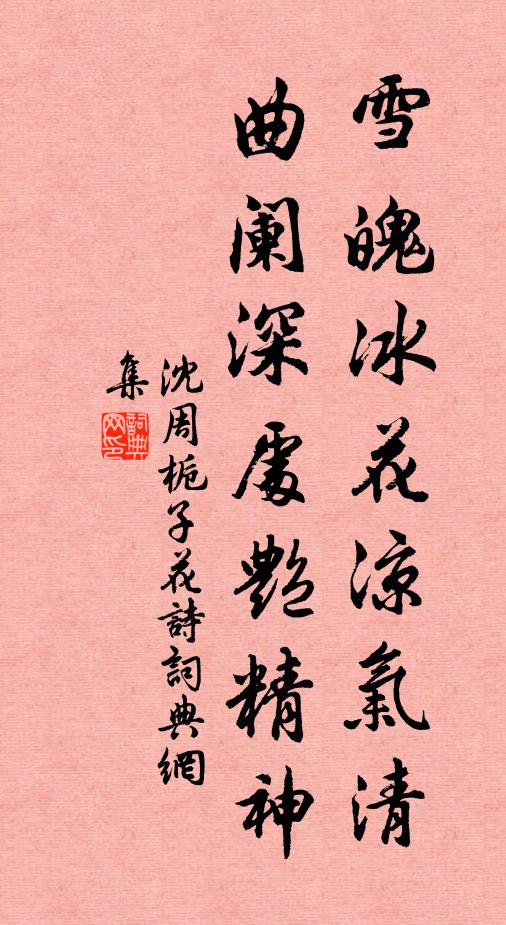 雪魄冰花凉氣清
曲阑深處艷精神
沈周栀子花詩詞典網
集
詞典
网印